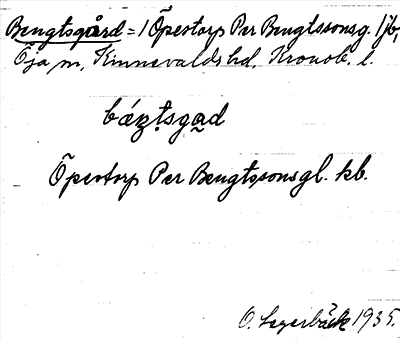 Bengtsgård = 1 Öpestorp Per Bengtssonsg. 1/6,
Öja sn, Kinnevalds hd, Kronob. l.
bázt̤sga̤d
Öpestorp Per Bengtssonsgl. kb.
O. Lagerbäck 1935.